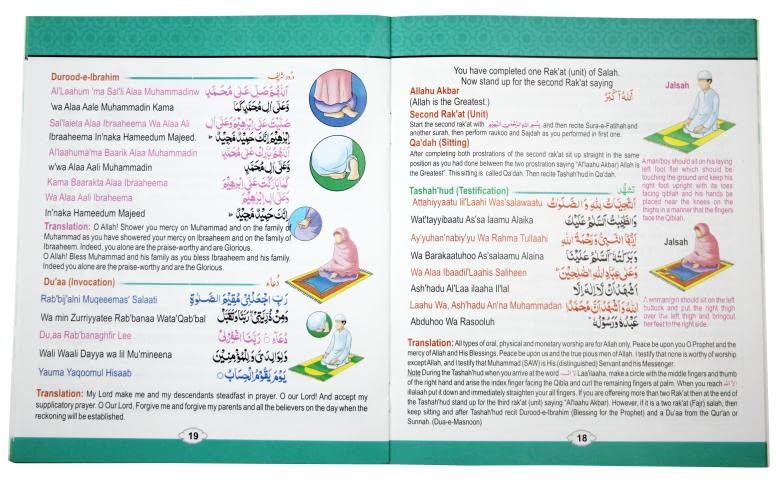 You have completed one Rak'at (unit) of Salah.
Now stand up for the second Rak'at saying
Allahu Akbar
اَللهُ اَكْبَرُ
(Allah is the Greatest.)
Second Rak'at (Unit)
Start the second rak'at with بِسْمِ اللهِ الرَّحْمٰنِ الرَّحِيْمِ and then recite Sura-e-Fatihah and
another surah, then perform raukoo and Sajdah as you performed in first one.
Qa'dah (Sitting)
After completing both prostrations of the second rak'at sit up straight in the same
position as you had done between the two prostration saying "Al'laahu Akbar) Allah is
the Greatest". This sitting is called Qa'dah. Then recite Tashah'hud in Qa'dah.
Jalsah
A man/boy should sit on his laying
left foot flat which should be
touching the ground and keep his
right foot upright with its toes
facing qiblah and his hands be
placed near the knees on the
thighs in a manner that the fingers
face the Qiblah.
Tashah'hud (Testification)
تشہُّد
Attahiyyaatu lil'Laahi Was'salawaatu اَلتَّحِيَّاتُ لِلّٰهِ وَالصَّلَوٰتُ
Wat'tayyibaatu As'sa laamu Alaika وَالطَّيِّبٰتُ اَلسَّلَامُ عَلَيْكَ
Ay'yuhan'nabiy'yu Wa Rahma Tullaahi اَيُّهَا النَّبِيُّ وَرَحْمَةُ اللهِ
Wa Barakaatuhoo As'salaamu Alaina وَبَرَكَاتُهٗ اَلسَّلَامُ عَلَيْنَا
Wa Alaa Ibaadil'Laahis Saliheen وَعَلٰى عِبَادِ اللهِ الصّٰلِحِيْنَ
Ash'hadu Al'Laa ilaaha Il'lal اَشْهَدُ اَنْ لَّا اِلٰهَ اِلَّا
Laahu Wa, Ash'hadu An'na Muhammadan اللهُ وَاَشْهَدُ اَنَّ مُحَمَّدًا
Abduhoo Wa Rasooluh عَبْدُهٗ وَرَسُوْلُهٗ
Jalsah
A woman/girl should sit on the left
buttock and put the right thigh
over the left thigh and bring out
her feet to the right side.
Translation: All types of oral, physical and monetary worship are for Allah only. Peace be upon you O Prophet and the
mercy of Allah and His Blessings. Peace be upon us and the true pious men of Allah. I testify that none is worthy of worship
except Allah, and I testify that Muhammad (SAW) is His (distinguished) Servant and his Messenger.
Note During the Tashah'hud when you arrive at the word لا الہ Laa'ilaaha, make a circle with the middle fingers and thumb
of the right hand and arise the index finger facing the Qibla and curl the remaining fingers at palm. When you reach الا الله
illalaah put it down and immediately straighten your all fingers. If you are offereing more than two Rak'at then at the end of
the Tashah'hud stand up for the third rak'at (unit) saying "Al'laahu Akbar). However, if it is a two rak'at (Fajr) salah, then
keep sitting and after Tashah'hud recit Durood-e-Ibrahim (Blessing for the Prophet) and a Du'aa from the Qur'an or
Sunnah. (Dua-e-Masnoon)
18
Durood-e-Ibrahim
درُود شریف
Al'Laahum 'ma Sal'li Alaa Muhammadinw اَللّٰهُمَّ صَلِّ عَلٰى مُحَمَّدٍ
'wa Alaa Aale Muhammadin Kama وَّعَلٰى اٰلِ مُحَمَّدٍ كَمَا
Sal'laieta Alaa Ibraaheema Wa Alaa Ali صَلَّيْتَ عَلٰى اِبْرٰهِيْمَ وَعَلٰى اٰلِ
Ibraaheema In'naka Hameedum Majeed. اِبْرٰهِيْمَ اِنَّكَ حَمِيْدٌ مَّجِيْدٌ
Al'laahuma'ma Baarik Alaa Muhammadin اَللّٰهُمَّ بَارِكْ عَلٰى مُحَمَّدٍ
w'wa Alaa Aali Muhammadin وَّعَلٰى اٰلِ مُحَمَّدٍ
Kama Baarakta Alaa Ibraaheema كَمَا بَارَكْتَ عَلٰى اِبْرٰهِيْمَ
Wa Alaa Aali Ibraheema وَعَلٰى اٰلِ اِبْرٰهِيْمَ
In'naka Hameedum Majeed اِنَّكَ حَمِيْدٌ مَّجِيْدٌ
Translation: O Allah! Shower you mercy on Muhammad and on the family of
Muhammad as you have showered your mercy on Ibraaheem and on the family of
Ibraaheem. Indeed, you alone are the praise-worthy and are Glorious.
O Allah! Bless Muhammad and his family as you bless Ibraaheem and his family.
Indeed you alone are the praise-worthy and are the Glorious.
Du'aa (Invocation)
دُعاء
Rab'bij'alni Muqeeemas' Salaati رَبِّ اجْعَلْنِىْ مُقِيْمَ الصَّلٰوةِ
Wa min Zurriyyatee Rab'banaa Wata'Qab'bal وَمِنْ ذُرِّيَّتِىْ رَبَّنَا وَتَقَبَّلْ
Du,aa Rab'banaghfir Lee دُعَآءِ رَبَّنَا اغْفِرْلِىْ
Wali Waali Dayya wa lil Mu'mineena وَلِوَالِدَىَّ وَلِلْمُؤْمِنِيْنَ
Yauma Yaqoomul Hisaab يَوْمَ يَقُوْمُ الْحِسَابُ
Translation: My Lord make me and my descendants steadfast in prayer. O our Lord! And accept my
supplicatory prayer. O Our Lord, Forgive me and forgive my parents and all the believers on the day when the
reckoning will be established.
19